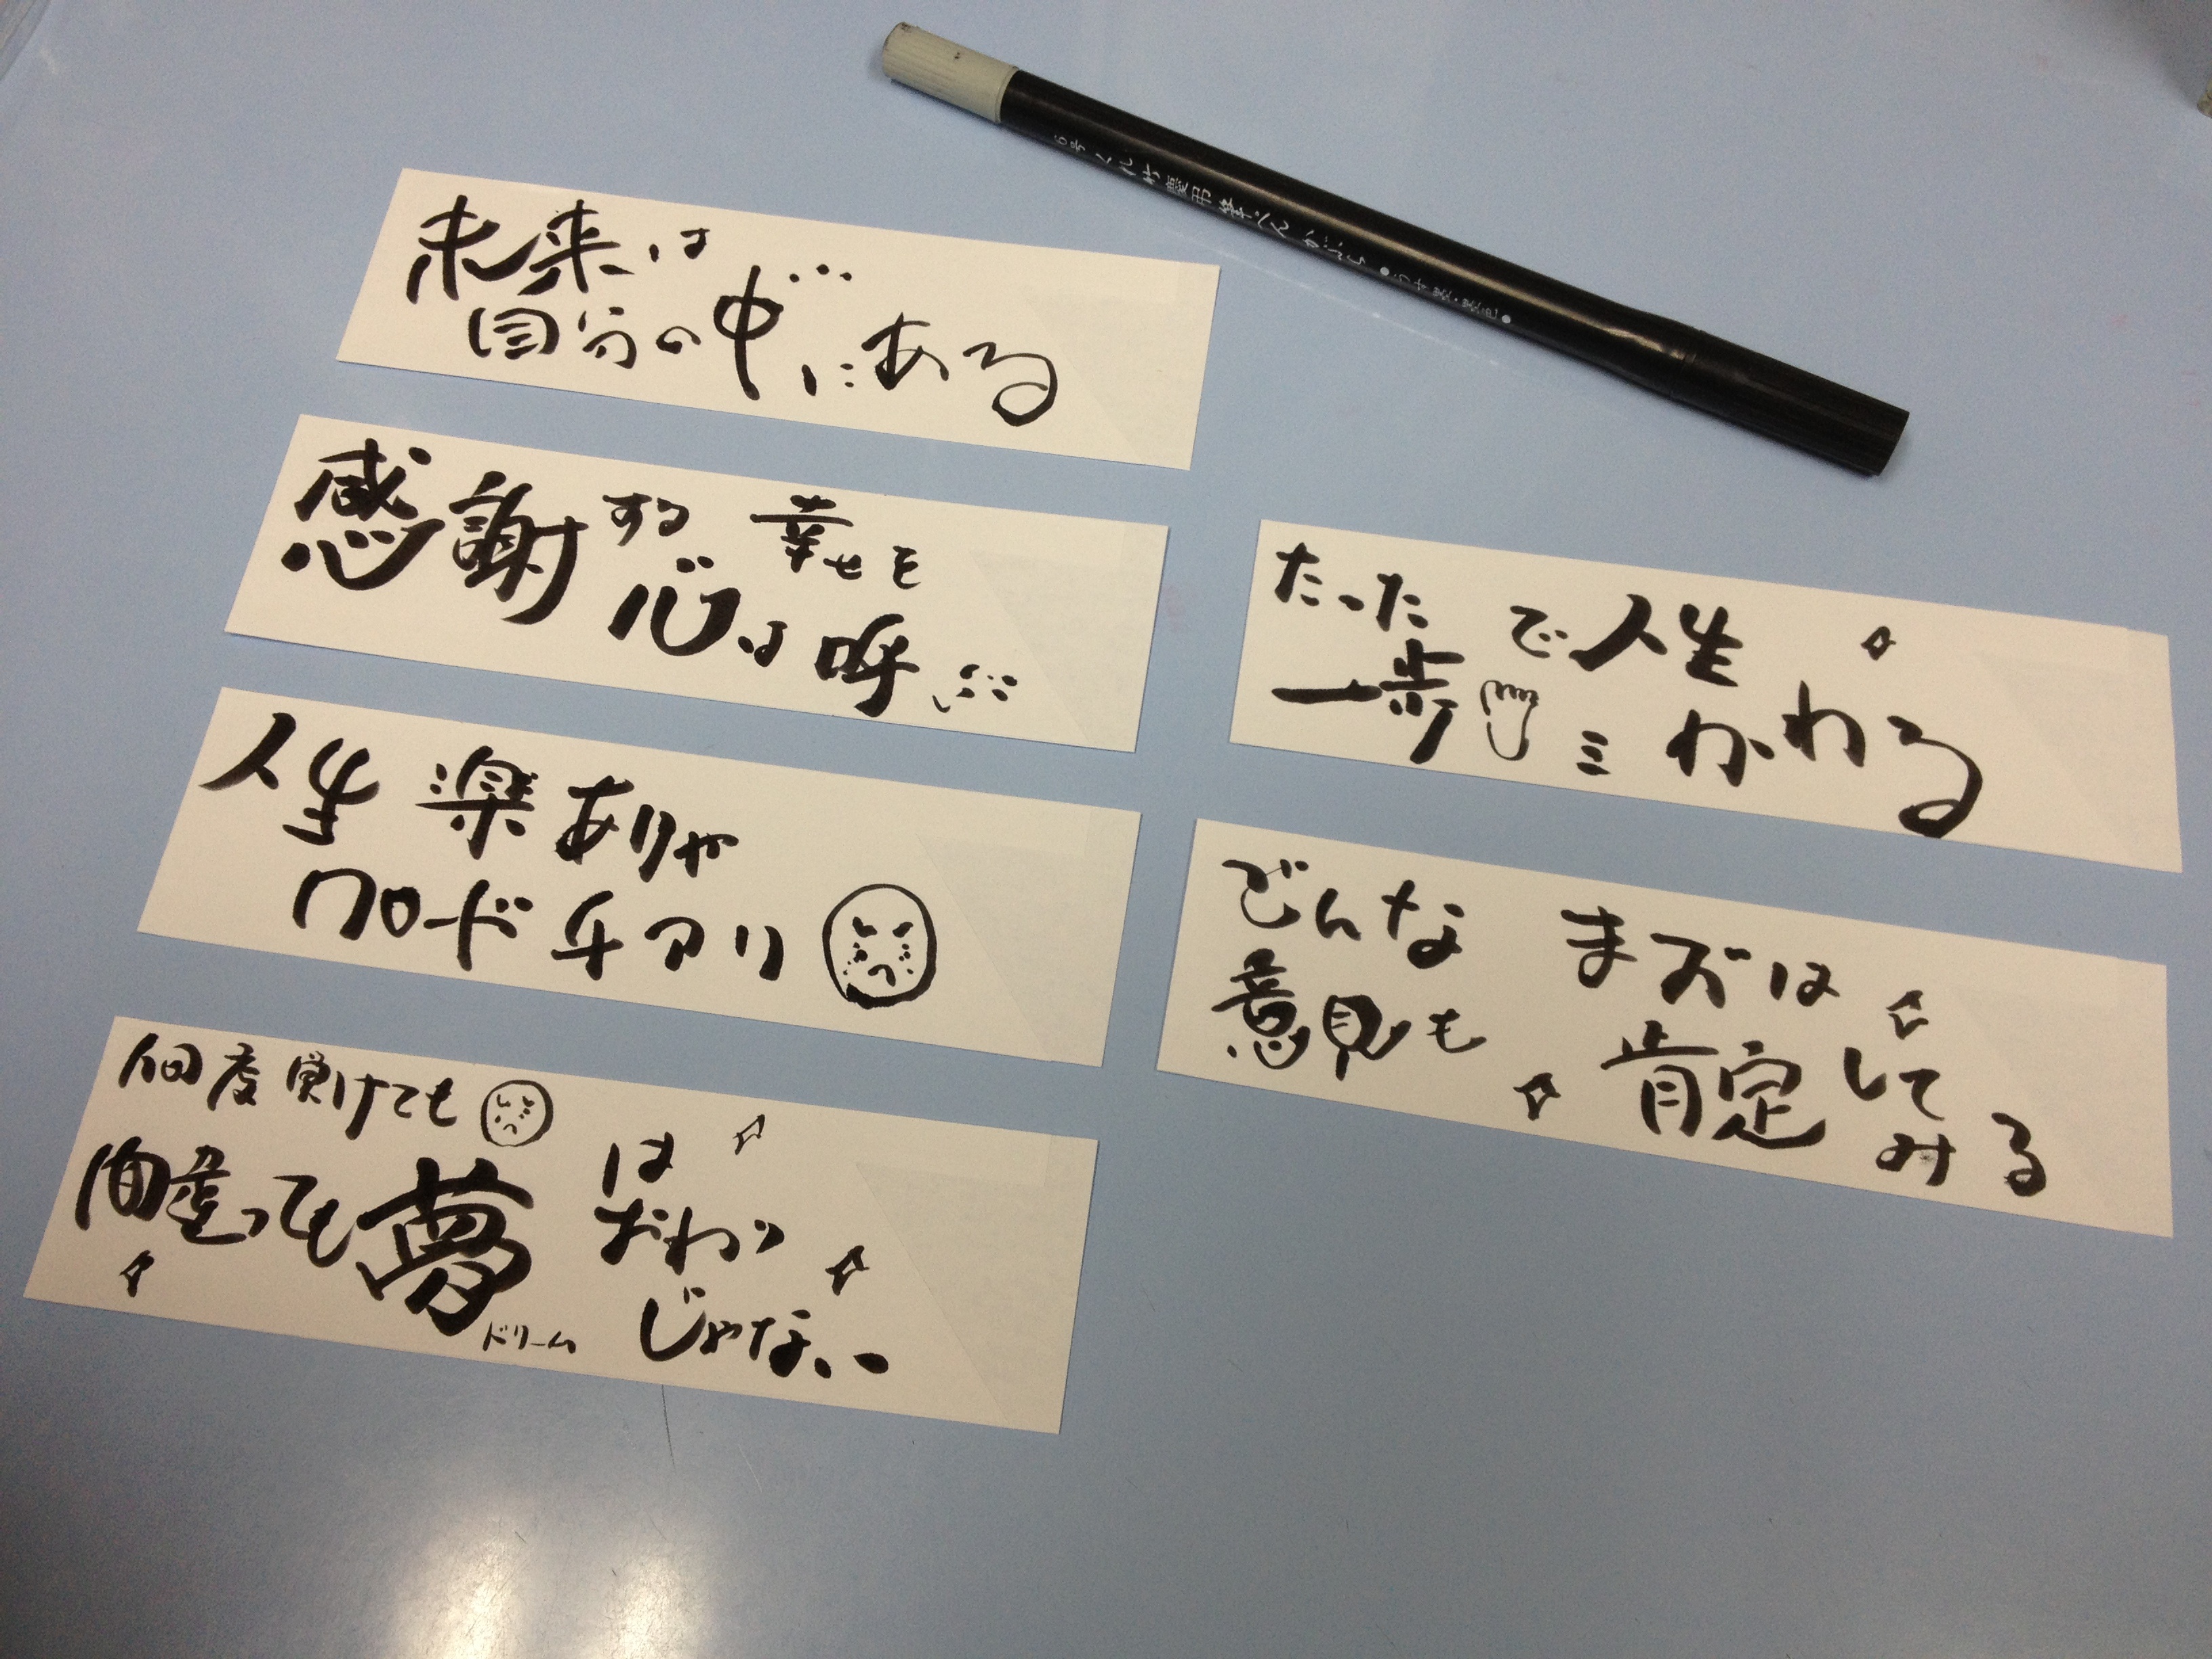 未来は
自分の中にある
感謝する
心は
幸せを
呼ぶ
人生楽ありゃ
クロードチアリ
何度負けても
間違っても夢
ドリーム
は
おわり
じゃない
たった
一歩
で人生
かわる
どんな
意見も
まずは
肯定して
みる